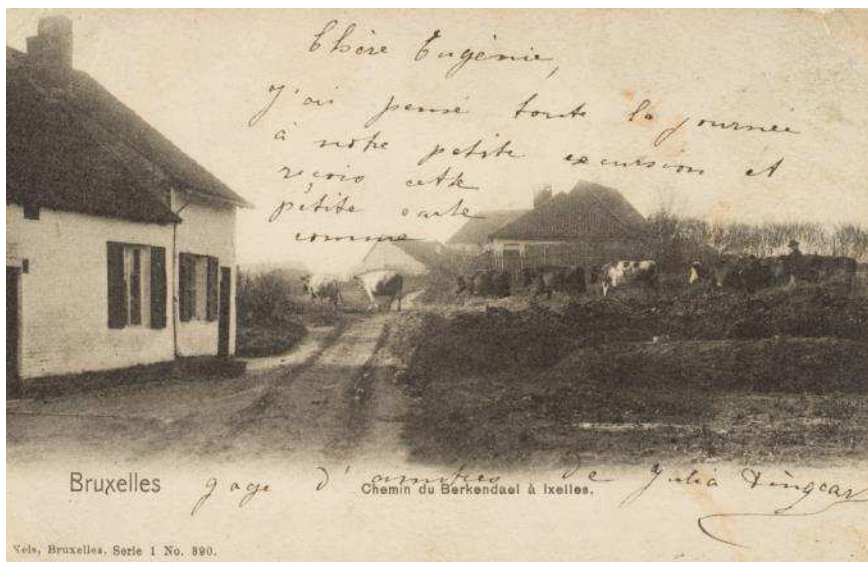 Chère Eugénie,
J'ai pensé toute la journée
à notre petite excursion et
reçois cette
petite carte
comme
gage d'amitiés de Julia
Bruxelles
Chemin du Berkendael à Ixelles.
Nels, Bruxelles, Serie 1 No. 890.